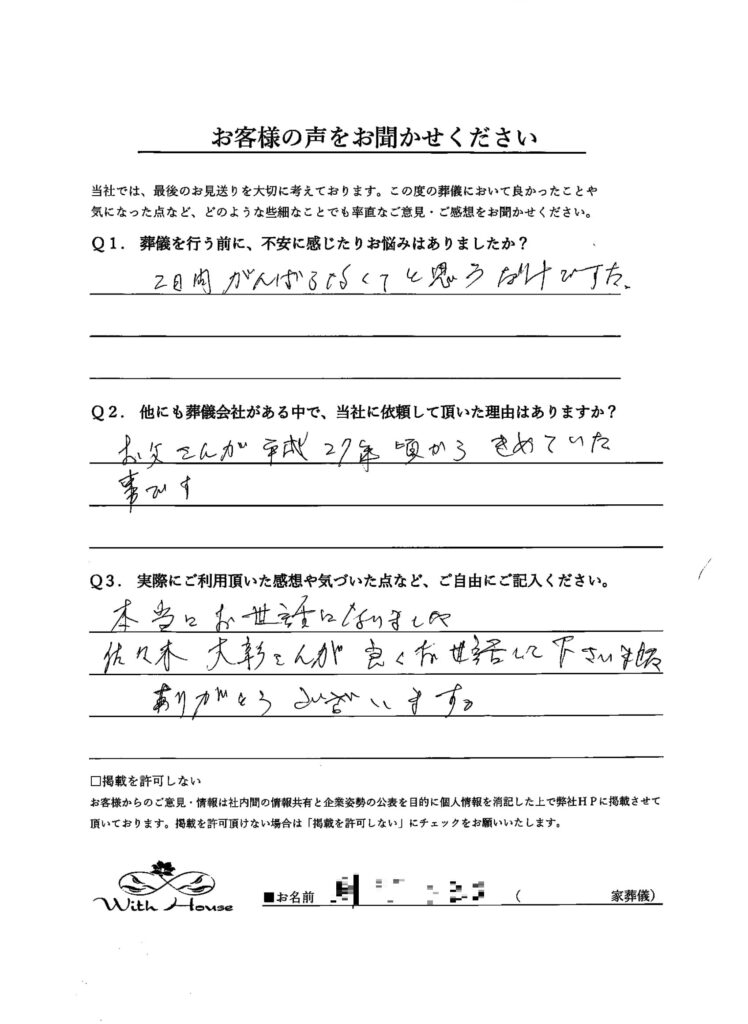 お客様の声をお聞かせください
当社では、最後のお見送りを大切に考えております。この度の葬儀において良かったことや
気になった点など、どのような些細なことでも率直なご意見・ご感想をお聞かせください。
Q1. 葬儀を行う前に、不安に感じたりお悩みはありましたか？
2日間がんばらなくてと思うだけでした。
Q2. 他にも葬儀会社がある中で、当社に依頼して頂いた理由はありますか？
お父さんが平成27年頃からきめていた
事です
Q3. 実際にご利用頂いた感想や気づいた点など、ご自由にご記入ください。
本当にお世話になりました
佐々木 大彰さんが良くお世話して下さいました
ありがとうございます。
□掲載を許可しない
お客様からのご意見・情報は社内間の情報共有と企業姿勢の公表を目的に個人情報を消記した上で弊社ＨＰに掲載させて
頂いております。掲載を許可頂けない場合は「掲載を許可しない」にチェックをお願いいたします。
With House
■お名前 （ 家葬儀）